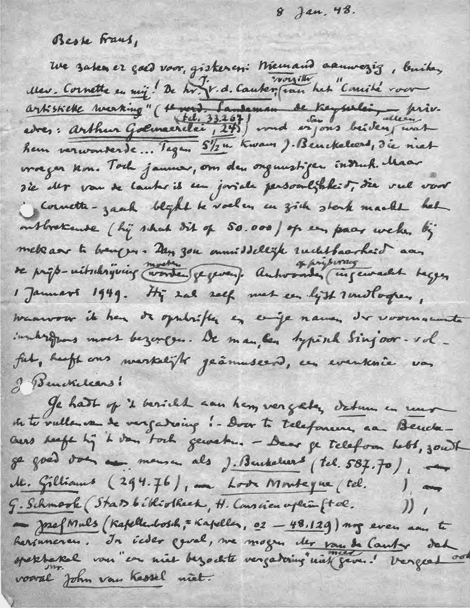 8 Jan. 48.
Beste Frans,
We zaten er goed voor, gisteren: Niemand aanwezig, buiten
Mev. Cornette en mij! De hr. J. v. d. Cauter, voorzitter van het "Comité voor
artistieke werking" ( de Keyserlei, priv-
adres: Arthur Goemaerelei, 243) (tel. 33267) vond er ons beiden, wat
hem verwonderde... Tegen 5½ u kwam J. Beuckeleers, die niet
vroeger kon. Toch jammer, om den ongunstigen indruk. Maar
die Mr van de Cauter is een joviale persoonlijkheid, die veel voor
Cornette-zaak blijkt te voelen en zich sterk maakt het
ontbrekende (hij schat dit op 50.000) op een paar weken bij
mekaar te brengen. Dan zou onmiddellijk ruchtbaarheid aan
de prijs-uitschrijving moeten worden gegeven. Antwoorden op prijsvraag ingewacht tegen
1 Januari 1949. Hij zal zelf met een lijst rondloopen,
waarvoor ik hem de opschriften en eenige namen der voornaamste
inschrijvers moet bezorgen. De man, een typisch Sinjoor-vol-
fut, heeft ons werkelijk geämuseerd, een evenknie van
J. Beuckeleers!
Ge hadt op 't bericht aan hem vergeten datum en uur
in te vullen van de vergadering! - Door te telefoneren aan Beucke-
leers heeft hij 't dan toch geweten. - Daar ge telefoon hebt, zoudt
ge goed doen mensen als J. Beuckeleers (tel. 587.70),
M. Gilliams (294.76), Lode Monteyne (tel. ),
G. Schmook (Stadsbibliotheek, H. Conscienceplein, tel. ),
Jozef Muls (Kapellenbosch, Kapellen, 02 - 48.129) nog even aan te
herinneren. In ieder geval, we mogen Mr van de Cauter dat
spektakel van "een niet bezochte vergadering" niet meer geven! Vergeet ook
vooral Mr. John van Kessel niet.